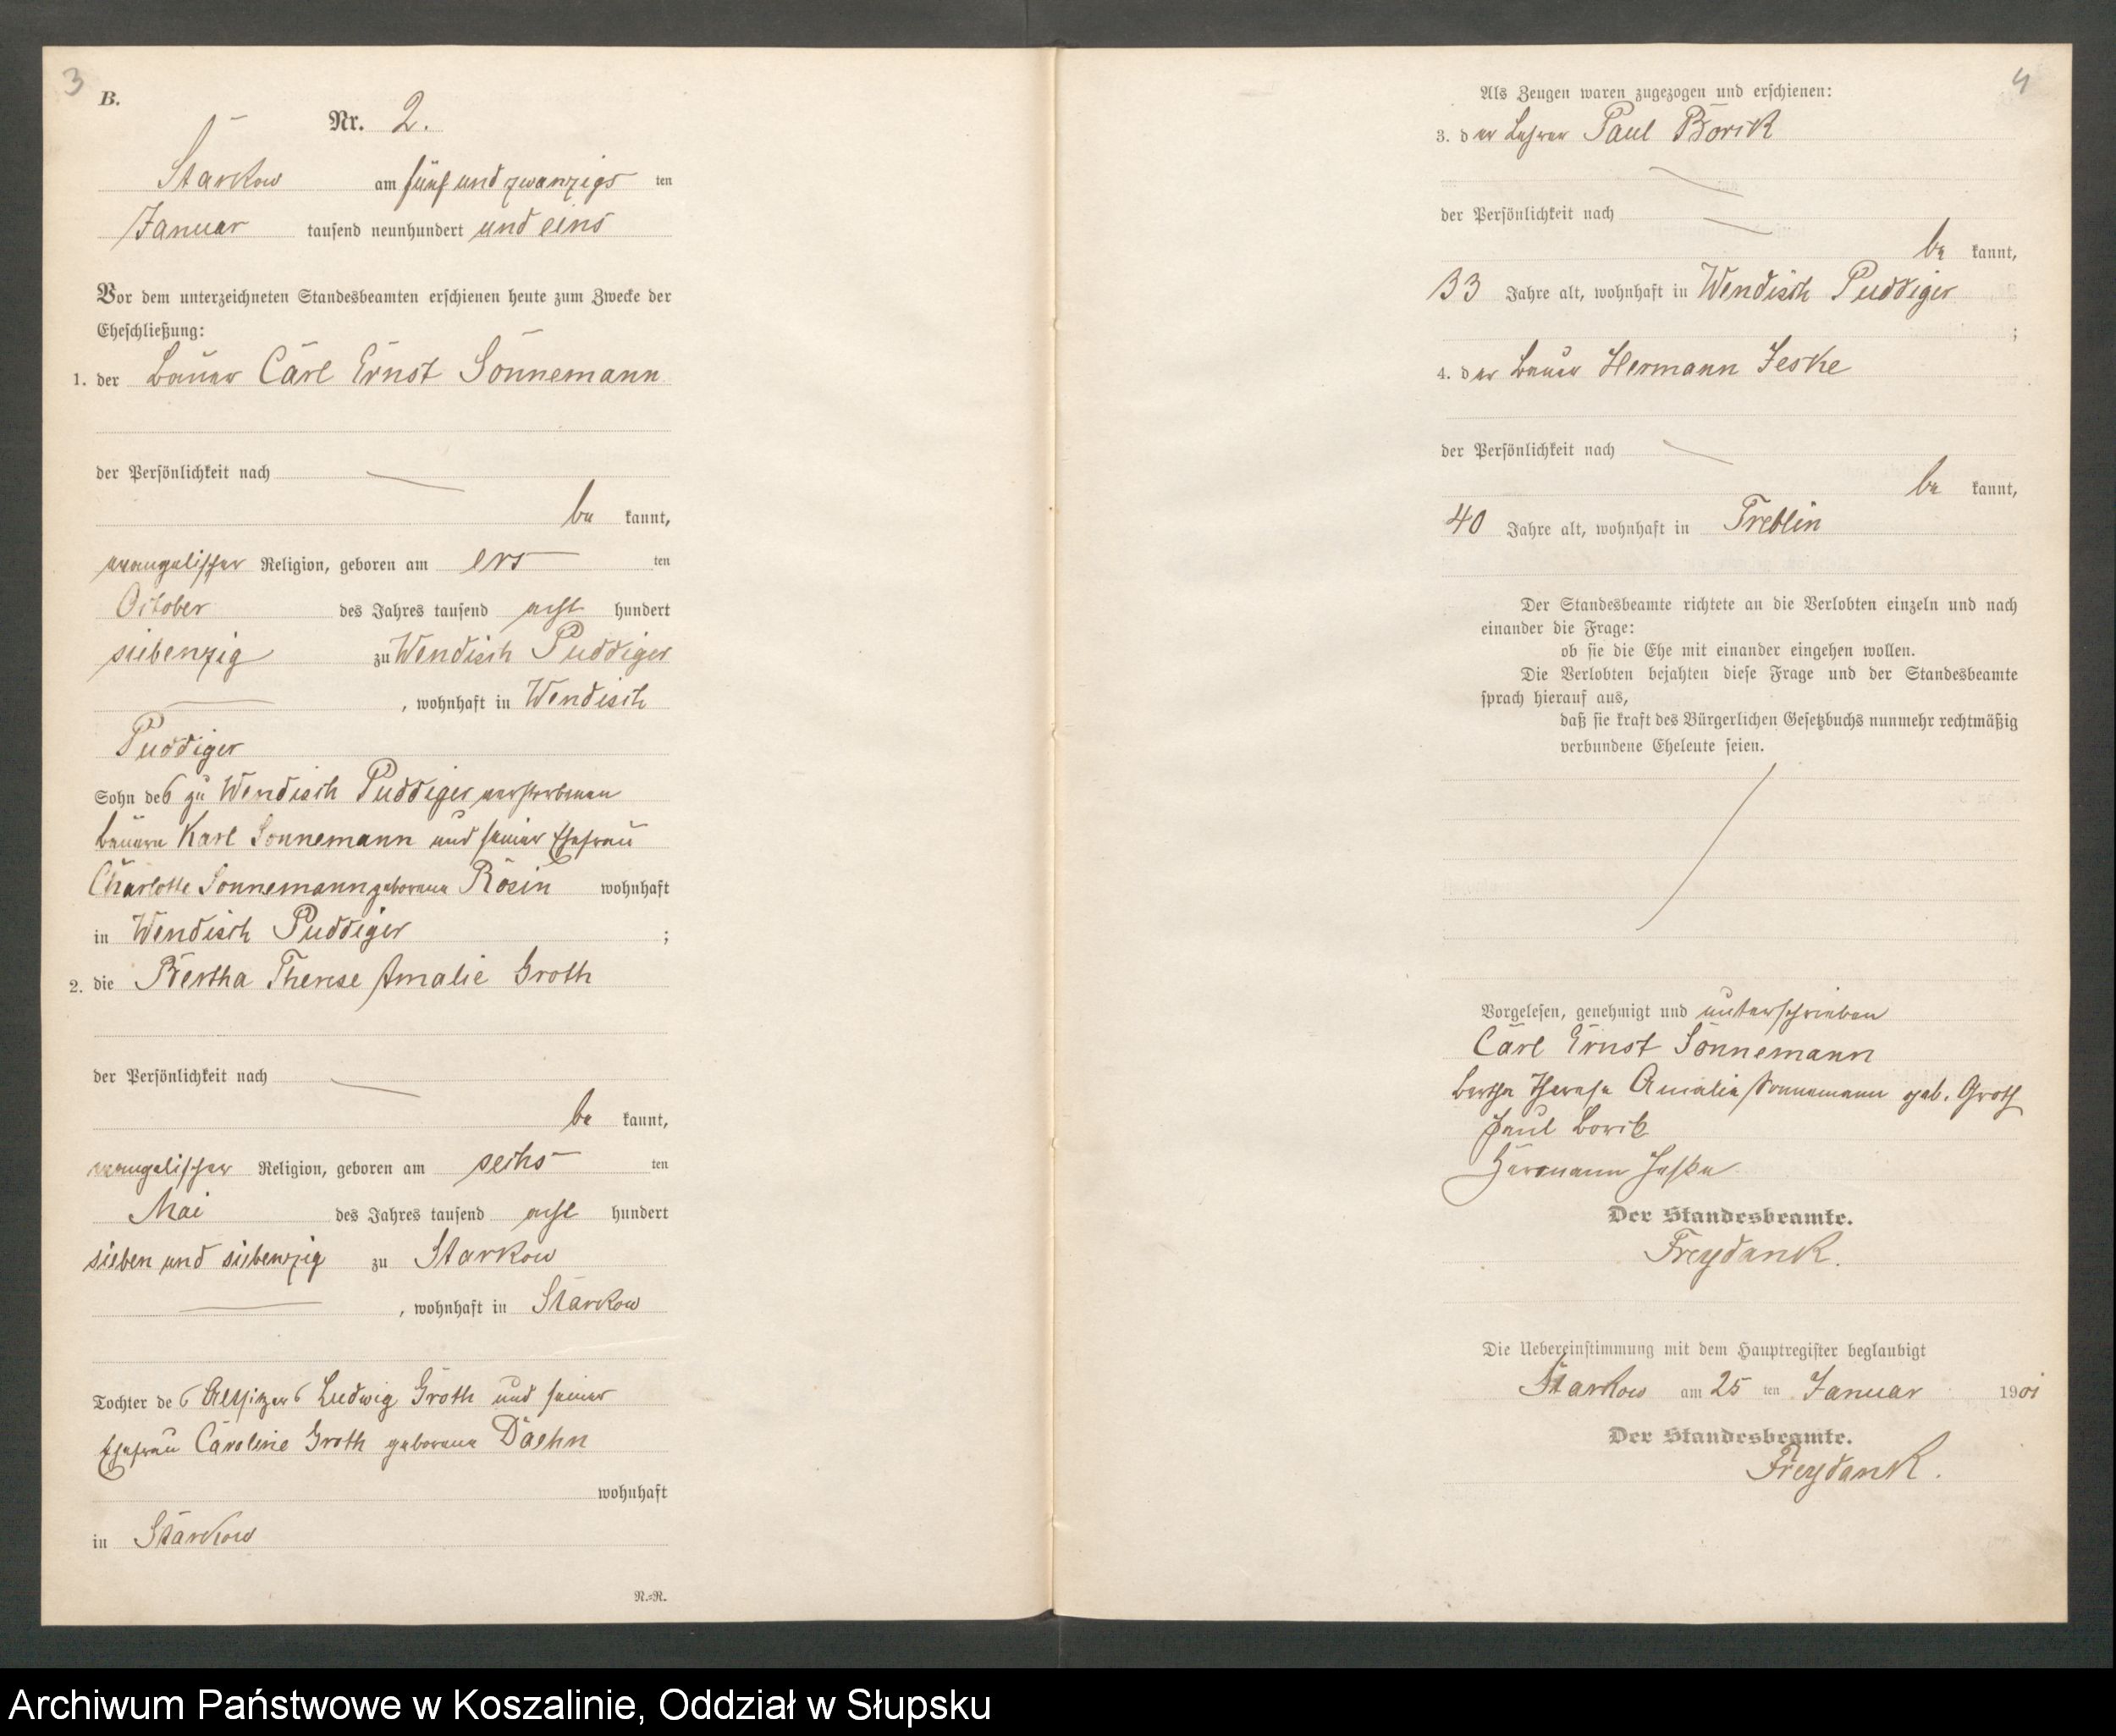 3
B.
Nr. 2.
Starkow am fünf und zwanzigs ten
Januar tausend neunhundert und eins
Vor dem unterzeichneten Standesbeamten erschienen heute zum Zwecke der
Eheschließung:
1. der Bauer Carl Ernst Sonnemann
der Persönlichkeit nach
be kannt,
evangelischer Religion, geboren am ers ten
October des Jahres tausend acht hundert
siebenzig zu Wendisch Puddiger
, wohnhaft in Wendisch
Puddiger
Sohn des zu Wendisch Puddiger verstorbenen
Bauern Karl Sonnemann und seiner Ehefrau
Charlotte Sonnemann geborene Rosin wohnhaft
in Wendisch Puddiger ;
2. die Bertha Therese Amalie Groth
der Persönlichkeit nach
be kannt,
evangelischer Religion, geboren am sechs ten
Mai des Jahres tausend acht hundert
sieben und siebenzig zu Starkow
, wohnhaft in Starkow
Tochter des Altsitzers Ludwig Groth und seiner
Ehefrau Caroline Groth geborene Daehn
wohnhaft
in Starkow
N.=R.
4
Als Zeugen waren zugezogen und erschienen:
3. der Lehrer Paul Borck
der Persönlichkeit nach
be kannt,
33 Jahre alt, wohnhaft in Wendisch Puddiger
;
4. der Bauer Hermann Jeske
der Persönlichkeit nach
be kannt,
40 Jahre alt, wohnhaft in Treblin
Der Standesbeamte richtete an die Verlobten einzeln und nach
einander die Frage:
ob sie die Ehe mit einander eingehen wollen.
Die Verlobten bejahten diese Frage und der Standesbeamte
sprach hierauf aus,
daß sie kraft des Bürgerlichen Gesetzbuchs nunmehr rechtmäßig
verbundene Eheleute seien.
Vorgelesen, genehmigt und unterschrieben
Carl Ernst Sonnemann
Bertha Therese Amalie Sonnemann geb. Groth
Paul Borck
Hermann Jeske
Der Standesbeamte.
Freydank.
Die Uebereinstimmung mit dem Hauptregister beglaubigt
Starkow am 25 ten Januar 1901
Der Standesbeamte.
Freydank.
Archiwum Państwowe w Koszalinie, Oddział w Słupsku